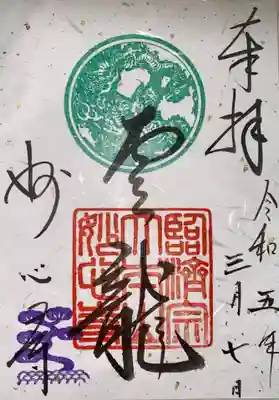 奉拝
令和五年
三月七日
雲龍
臨済宗
大本山
妙心寺
妙心寺